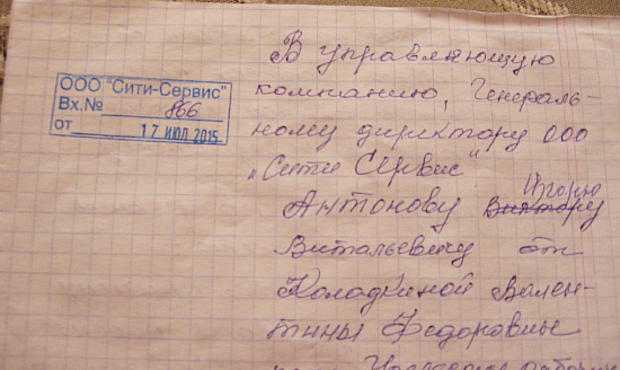 ООО "Сити-Сервис"
Вх.№ 866
от 17 ИЮЛ 2015
В управляющую
компанию, Генераль-
ному директору ООО
„Сити Сервис"
Игорю
Антонову Виктору
Витальевичу от
Колодкиной Вален-
тины Федоровны